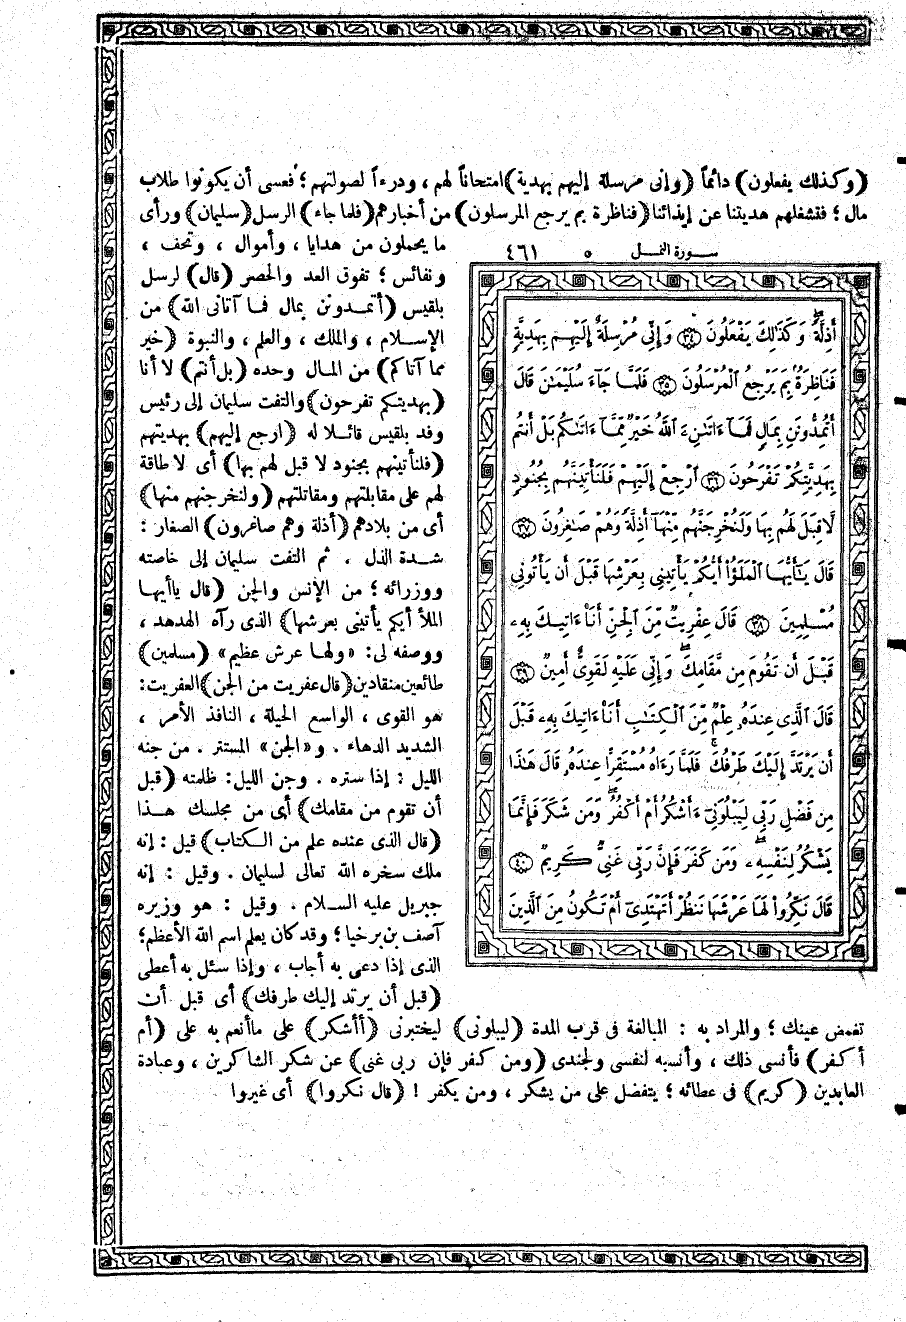 (وكذلك يفعلون) دائماً (وإنى مرسلة إليهم بهدية) امتحاناً لهم، ودرءاً لصولتهم؛ فعسى أن يكونوا طلاب
مال؛ فتشغلهم هديتنا عن إيذائنا (فناظرة بم يرجع المرسلون) من أخبارهم (فلما جاء) الرسل (سليمان) ورأى
ما يحملون من هدايا، وأموال، وتحف،
ونفائس؛ تفوق العد والحصر (قال) لرسل
بلقيس (أتمدونن بمال فما آتانى الله) من
الإسلام، والملك، والعلم، والنبوة (خير
مما آتاكم) من المال وحده (بل أنتم) لا أنا
(بهديتكم تفرحون) والتفت سليمان إلى رئيس
وفد بلقيس قائلا له (ارجع إليهم) بهديتهم
(فلنأتينهم بجنود لا قبل لهم بها) أى لا طاقة
لهم على مقابلتهم ومقاتلتهم (ولنخرجنهم منها)
أى من بلادهم (أذلة وهم صاغرون) الصغار:
شدة الذل. ثم التفت سليمان إلى خاصته
ووزرائه؛ من الإنس والجن (قال يا أيها
الملأ أيكم يأتينى بعرشها) الذى رآه الهدهد،
ووصفه لى: «ولها عرش عظيم» (مسلمين)
طائعين منقادين (قال عفريت من الجن) العفريت:
هو القوى، الواسع الحيلة، النافذ الأمر،
الشديد الدهاء. و«الجن» المستتر. من جنه
الليل: إذا ستره. وجن الليل: ظلمته (قبل
أن تقوم من مقامك) أى من مجلسك هذا
(قال الذى عنده علم من الكتاب) قيل: إنه
ملك سخره الله تعالى لسليمان. وقيل: إنه
جبريل عليه السلام. وقيل: هو وزيره
آصف بن برخيا؛ وقد كان يعلم اسم الله الأعظم؛
الذى إذا دعى به أجاب، وإذا سئل به أعطى
(قبل أن يرتد إليك طرفك) أى قبل أن
سورة النمل ٥ ٤٦١
أَذِلَّةً وَكَذَٰلِكَ يَفْعَلُونَ ٣٤ وَإِنِّي مُرْسِلَةٌ إِلَيْهِم بِهَدِيَّةٍ
فَنَاظِرَةٌ بِمَ يَرْجِعُ الْمُرْسَلُونَ ٣٥ فَلَمَّا جَاءَ سُلَيْمَٰنَ قَالَ
أَتُمِدُّونَنِ بِمَالٍ فَمَا ءَاتَىٰنِۦَ اللَّهُ خَيْرٌ مِّمَّا ءَاتَىٰكُم بَلْ أَنتُم
بِهَدِيَّتِكُمْ تَفْرَحُونَ ٣٦ ارْجِعْ إِلَيْهِمْ فَلَنَأْتِيَنَّهُم بِجُنُودٍ
لَّا قِبَلَ لَهُم بِهَا وَلَنُخْرِجَنَّهُم مِّنْهَا أَذِلَّةً وَهُمْ صَٰغِرُونَ ٣٧
قَالَ يَٰأَيُّهَا الْمَلَؤُا أَيُّكُمْ يَأْتِينِي بِعَرْشِهَا قَبْلَ أَن يَأْتُونِي
مُسْلِمِينَ ٣٨ قَالَ عِفْرِيتٌ مِّنَ الْجِنِّ أَنَا ءَاتِيكَ بِهِۦ
قَبْلَ أَن تَقُومَ مِن مَّقَامِكَ وَإِنِّي عَلَيْهِ لَقَوِيٌّ أَمِينٌ ٣٩
قَالَ الَّذِي عِندَهُۥ عِلْمٌ مِّنَ الْكِتَٰبِ أَنَا ءَاتِيكَ بِهِۦ قَبْلَ
أَن يَرْتَدَّ إِلَيْكَ طَرْفُكَ فَلَمَّا رَءَاهُ مُسْتَقِرًّا عِندَهُۥ قَالَ هَٰذَا
مِن فَضْلِ رَبِّي لِيَبْلُوَنِي ءَأَشْكُرُ أَمْ أَكْفُرُ وَمَن شَكَرَ فَإِنَّمَا
يَشْكُرُ لِنَفْسِهِۦ وَمَن كَفَرَ فَإِنَّ رَبِّي غَنِيٌّ كَرِيمٌ ٤٠
قَالَ نَكِّرُوا لَهَا عَرْشَهَا نَنظُرْ أَتَهْتَدِي أَمْ تَكُونُ مِنَ الَّذِينَ
تغمض عينك؛ والمراد به: المبالغة فى قرب المدة (ليبلونى) ليختبرنى (أأشكر) على ما أنعم به على (أم
أكفر) فأنسى ذلك، وأنسبه لنفسى ولجندى (ومن كفر فإن ربى غنى) عن شكر الشاكرين، وعبادة
العابدين (كريم) فى عطائه؛ يتفضل على من يشكر، ومن يكفر! (قال نكروا) أى غيروا